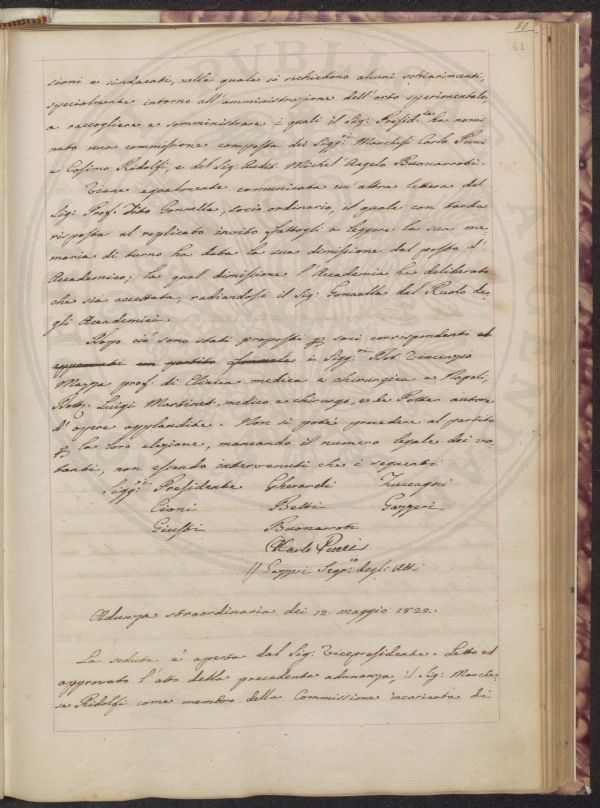 80
41
sioni e sindacati, nella quale si richiedono alcuni schiarimenti,
specialmente intorno all'amministrazione dell'orto sperimentale,
a raccogliere e somministrare i quali il Sig: Presid:te ha nomi
nato una commissione composta dei Sigg:ri Marchesi Carlo Pucci
e Cosimo Ridolfi, e del Sig: Audit: Michel'Angelo Buonarroti.
Viene egualmente comunicata un'altra lettera del
Sig: Prof: Vito Gonnella, socio ordinario, il quale con tarda
risposta al replicato invito fattogli a leggere la sua me
moria di turno ha data la sua dimissione dal posto d'
Accademico; la qual dimissione l'Academia ha deliberato
che sia accettata, radiandosi il Sig: Gonnella dal Ruolo de-
gli Accademici.
Dopo ciò sono stati proposti p soci corrispondenti ed
approvati un partito formale i Sigg:ri Dott Vincenzio
Mazza prof: di Clinica medica e chirurgica a Napoli,
Dott: Luigi Martinet, medico e chirurgo, e de Potter autore
d'opere applaudite. Non si potè procedere al partito
p la loro elezione, mancando il numero legale dei vo
tanti, non essendo intervenuti che i seguenti
Sigg:ri Presidente Gherardi Zuccagni
Cioni Betti Gazzeri
Giusti Buonarroti
Carlo Pucci
G Gazzeri Segr:io degli Atti
Adunza straordinaria dei 12 maggio 1822.
La seduta è aperta dal Sig: Vicepresidente. Letto ed
approvato l'atto della precedente adunanza, il Sig: Marche-
se Ridolfi come membro della Commissione incaricata di